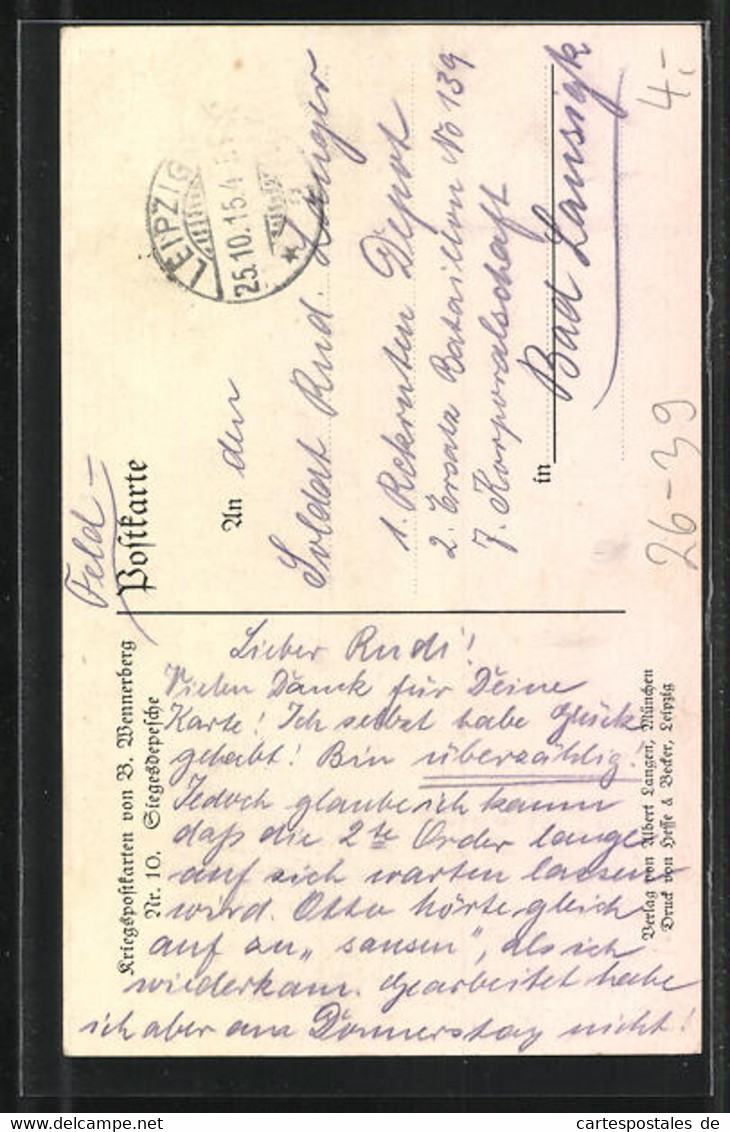 Feld-
Postkarte
LEIPZIG
25.10.15.4-5
An den
Soldat Rud. Zänger
1. Rekruten Depot
2. Ersatz Bataillon No 139
7. Korporalschaft
in
Bad Lausigk
4.-
26-39
Kriegspostkarten von B. Wennerberg
Nr. 10. Siegesdepesche
Lieber Rudi!
Vielen Dank für Deine
Karte! Ich selbst habe Glück
gehabt! Bin überzählig!
Jedoch glaube ich kaum
daß die 2te Order lange
auf sich warten lassen
wird. Otto hörte gleich
auf zu „sausen", als ich
wiederkam. Gearbeitet habe
ich aber am Donnerstag nicht!
Verlag von Albert Langen, München
Druck von Hesse & Becker, Leipzig
delcampe.net
cartespostales de